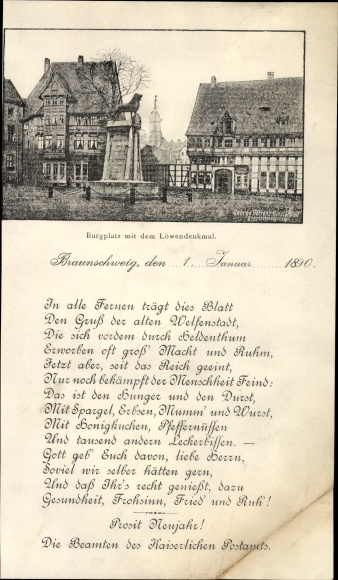 Burgplatz mit dem Löwendenkmal.
Braunschweig, den 1. Januar 1890.
In alle Fernen trägt dies Blatt
Den Gruß der alten Welfenstadt,
Die sich vordem durch Heldenthum
Erworben oft groß' Macht und Ruhm,
Jetzt aber, seit das Reich geeint,
Nur noch bekämpft der Menschheit Feind:
Das ist den Hunger und den Durst,
Mit Spargel, Erbsen, Mumm' und Wurst,
Mit Honigkuchen, Pfeffernüssen
Und tausend andern Leckerbissen. —
Gott geb' Euch davon, liebe Herrn,
Soviel wir selber hätten gern,
Und daß Ihr's recht genießt, dazu
Gesundheit, Frohsinn, Fried' und Ruh'!
Prosit Neujahr!
Die Beamten des Kaiserlichen Postamts.